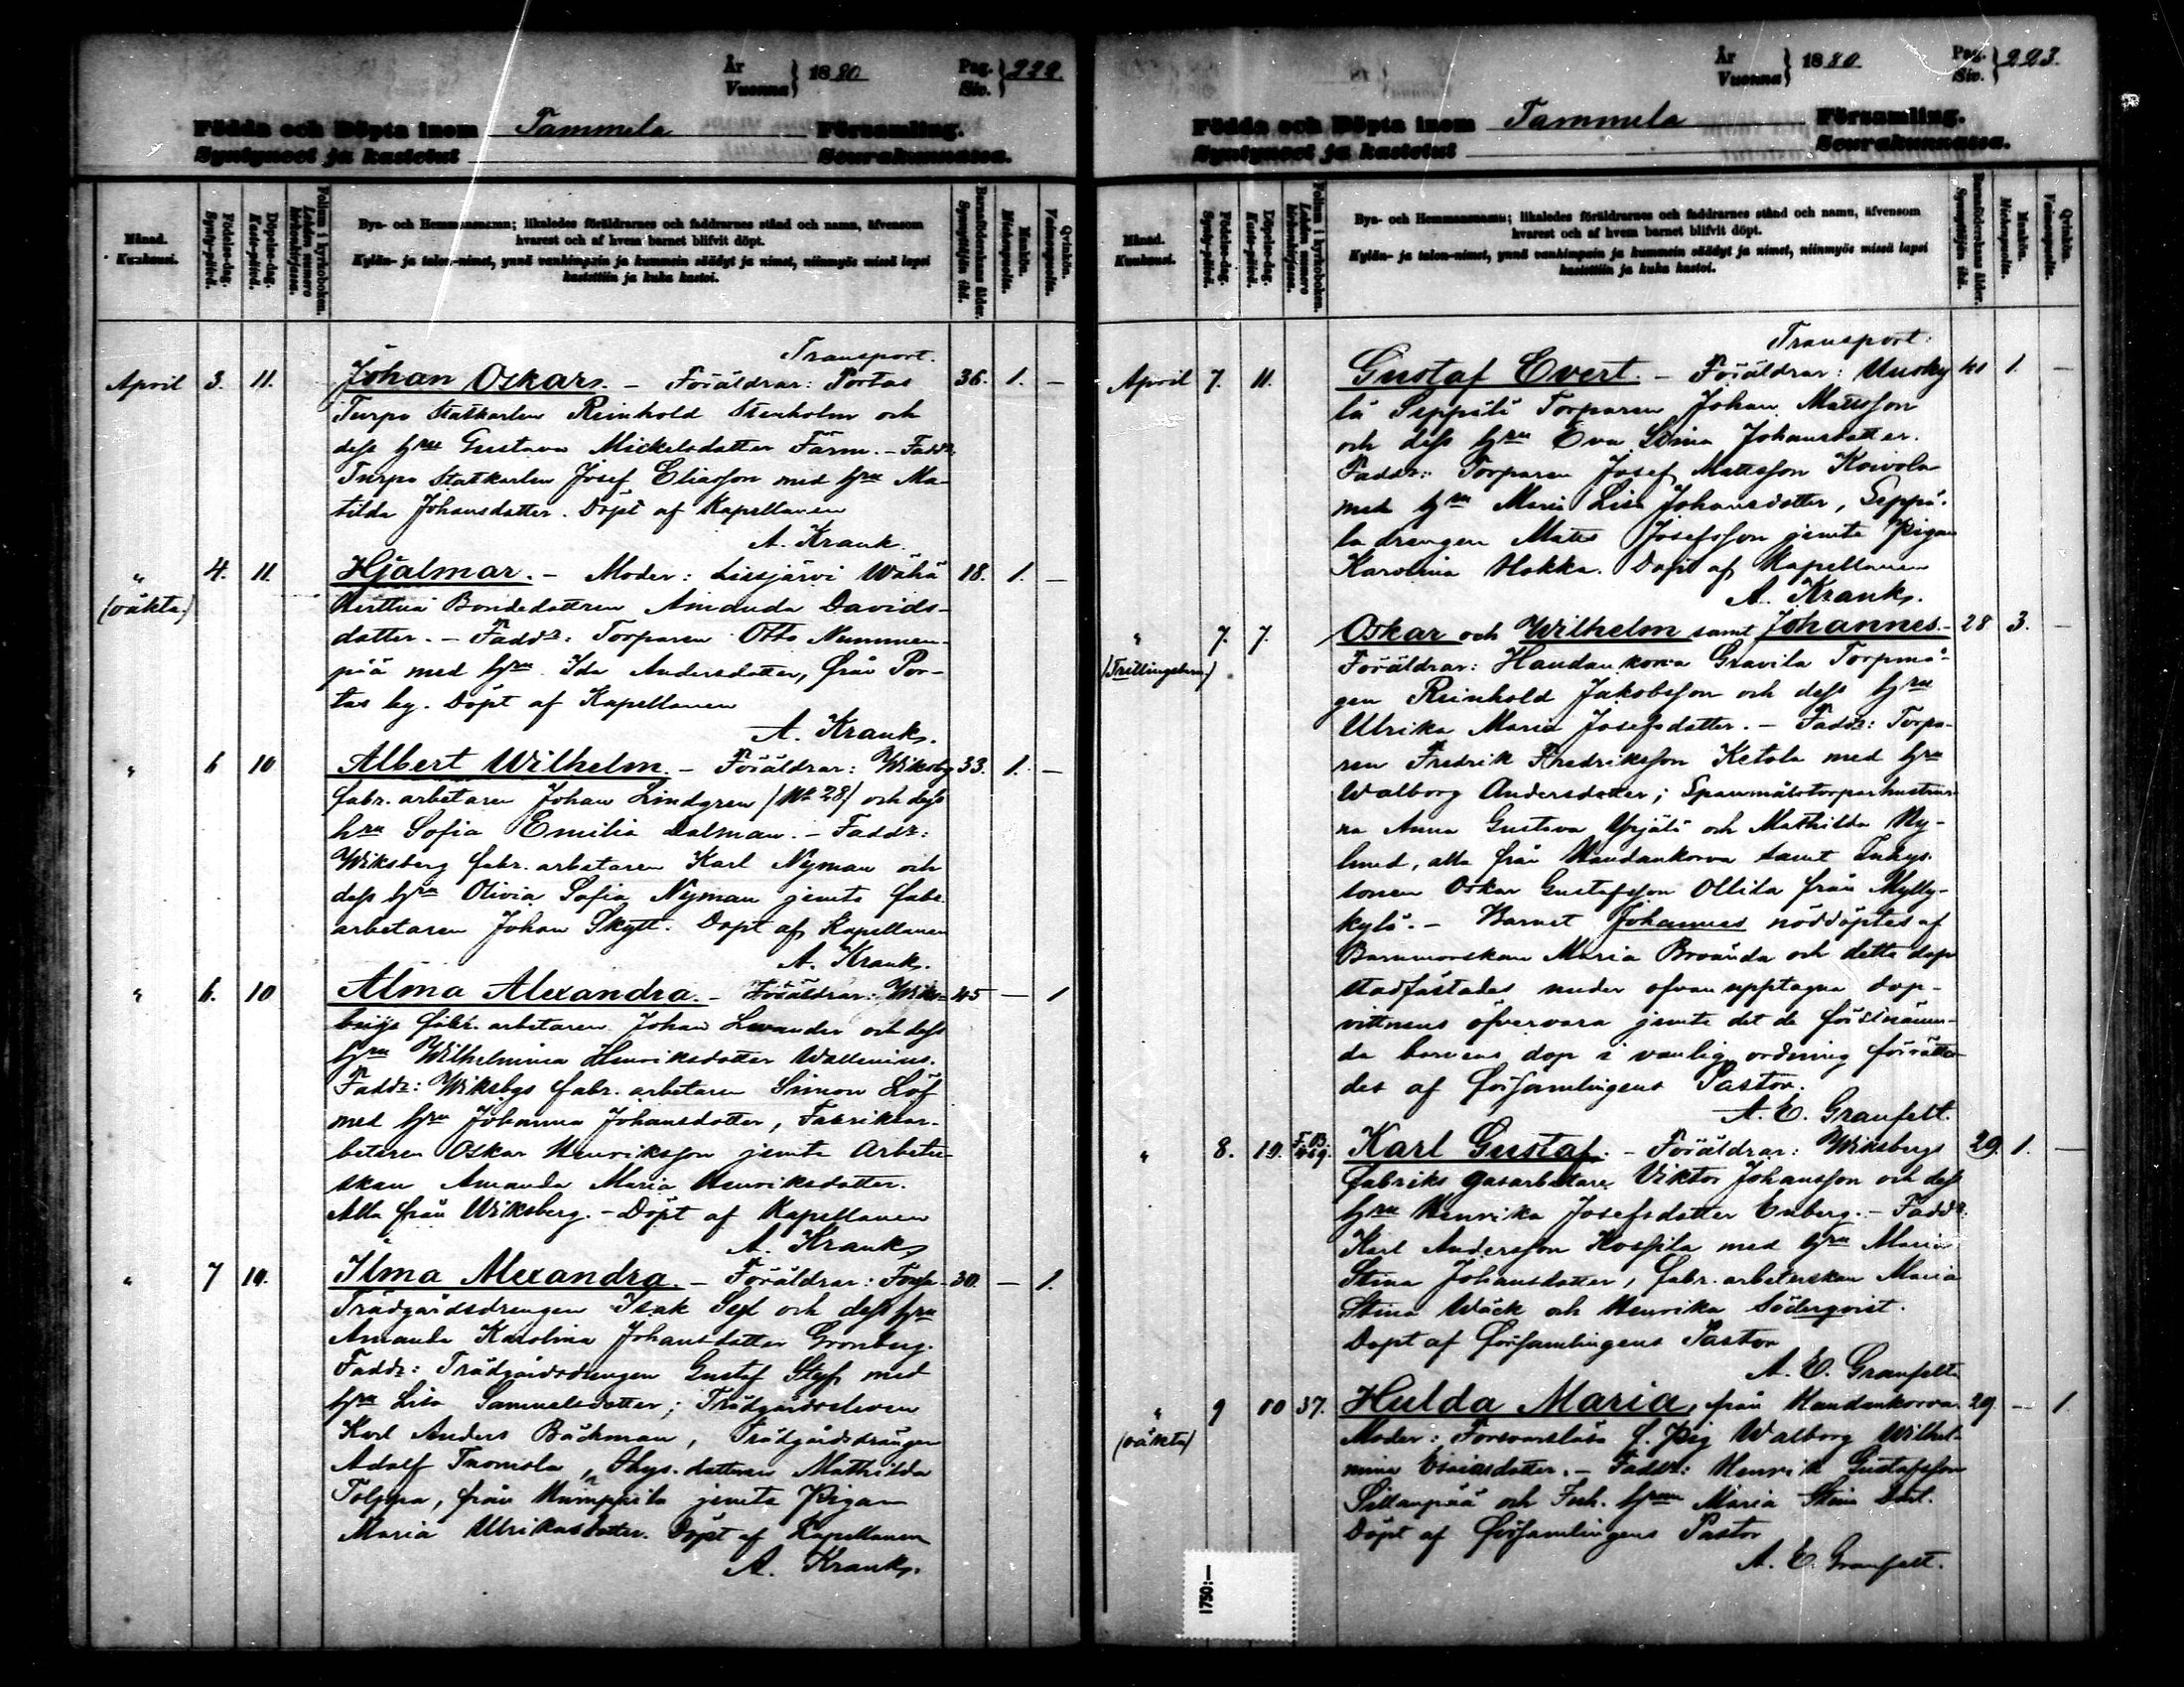 År
Vuonna } 1880
Pag.
Siv. } 222.
Födda och Döpta inom Tammela Församling.
Syntyneet ja kastetut Seurakunnassa.
Månad.
Kuukausi.
Födelse-dag.
Synty-päivä.
Döpelse-dag.
Kaste-päivä.
Folium i kyrkoboken.
Lehden numero kirkonkirjassa.
Bya- och Hemmansnamn; likaledes föräldrarnes och faddrarnes stånd och namn, äfvensom
hvarest och af hvem barnet blifvit döpt.
Kylän- ja talon-nimet, ynnä vanhimpain ja kummein säädyt ja nimet, niinmyös missä lapsi
kastettiin ja kuka kastoi.
Barnföderskans ålder.
Synnyttäjän ikä.
Mankön.
Miehenpuolta.
Qvinkön.
Vaimonpuolta.
Transport.
April 3. 11. Johan Oskar. - Föräldrar: Portas 36. 1. —
Turpo Statkarlen Reinhold Stenholm och
dess hru Gustava Mickelsdotter Färm. - Faddr:
Turpo Statkarlen Josef Eliasson med hru Ma-
tilda Johansdotter. Döpt af Kapellanen
A. Krank.
" 4. 11. Hjalmar. - Moder: Liesjärvi Wähä 18. 1. —
(oäkta)
Bondedottren Amanda Davids-
dotter. - Faddr: Torparen Otto Nummen-
pää med hru Ida Andersdotter, från Por-
tas by. Döpt af Kapellanen
A. Krank.
" 6 10 Albert Wilhelm. - Föräldrar: Wiksbg 33. 1. —
fabr. arbetaren Johan Lindgren (No 28) och dess
hru Sofia Emilia Dalman. - Faddr:
Wiksberg fabr. arbetaren Karl Nyman och
dess hru Olivia Sofia Nyman jemte fabr.
arbetaren Johan Skytt. Döpt af Kapellanen
A. Krank.
" 6. 10 Alma Alexandra. - Föräldrar: Wiks- 45 — 1
bergs fabr. arbetaren Johan Levander och dess
hru Wilhelmina Henriksdotter Wallenius.
Faddr: Wiksbgs fabr. arbetaren Simon Löf
med hru Johanna Johansdotter, Fabriksar-
betaren Oskar Henriksson jemte Arbeter-
skan Amanda Maria Henriksdotter.
Alla från Wiksberg. - Döpt af Kapellanen
A. Krank
" 7 10. Ilma Alexandra. - Föräldrar: 30. — 1.
Trädgårdsdrengen Isak och dess hru
Amanda Karolina Johansdotter Grönberg.
Faddr: Trädgårdsdrengen Gustaf med
hru Lisa Samuelsdotter; Trädgårdseleven
Karl Anders Bäckman, Trädgårdsdrängen
Adolf Tuomola, dottren Mathilda
Tolppa, från Humppila jemte Pigan
Maria Ulrikasdotter. Döpt af Kapellanen
A. Krank.
År
Vuonna } 1880
Pag.
Siv. } 223.
Födda och Döpta inom Tammela Församling.
Syntyneet ja kastetut Seurakunnassa.
Månad.
Kuukausi.
Födelse-dag.
Synty-päivä.
Döpelse-dag.
Kaste-päivä.
Folium i kyrkoboken.
Lehden numero kirkonkirjassa.
Bya- och Hemmansnamn; likaledes föräldrarnes och faddrarnes stånd och namn, äfvensom
hvarest och af hvem barnet blifvit döpt.
Kylän- ja talon-nimet, ynnä vanhimpain ja kummein säädyt ja nimet, niinmyös missä lapsi
kastettiin ja kuka kastoi.
Barnföderskans ålder.
Synnyttäjän ikä.
Mankön.
Miehenpuolta.
Qvinkön.
Vaimonpuolta.
Transport.
April 7. 11. Gustaf Evert. - Föräldrar: Uusky 1. —
lä Seppälä Torparen Johan Mattsson
och dess hru Eva Stina Johansdotter.
Faddr: Torparen Josef Mattsson Koivola
med hru Maria Lisa Johansdotter, Seppä-
la drengen Matts Josefsson jemte Pigan
Karolina Hokka. Döpt af Kapellanen
A. Krank.
" 7. 7. Oskar och Wilhelm samt Johannes. - 28 3. —
(Trillingbarn)
Föräldrar: Haudankorva Gravila Torpmå-
gen Reinhold Jakobsson och dess hru
Ulrika Maria Josefsdotter. - Faddr: Torpa-
ren Fredrik Fredriksson Ketola med hru
Walborg Andersdotter; Spanmålstorparhustrur-
na Anna Gustava Yrjälä och Mathilda Ny-
lund, alla från Haudankorva samt Inhys.
sonen Oskar Gustafsson Ollila från Mylly-
kylä. - Barnet Johannes nöddöptes af
Barnmorskan Maria Broända och detta dop
stadfästades under ofvan upptagna dop-
vittnens öfvervara jemte det de förstnämn-
da barnens dop i vanlig ordning förrätta-
des af Församlingens Pastor.
A. E. Granfelt.
" 8. 10. Karl Gustaf. - Föräldrar: Wiksbergs 29. 1. —
fabriks gasarbetare Viktor Johansson och dess
hru Henrika Josefsdotter Enberg. - Faddr:
Karl Andersson Hospila med hru Maria
Stina Johansdotter, fabr. arbeterskan Maria
Stina Wäck och Henrika Söderqvist.
Döpt af Församlingens Pastor
A. E. Granfelt.
" 9 10 37. Hulda Maria, från Haudankorva. 29. — 1.
(oäkta)
Moder: Försvarslösa f. Pig Walborg Wilhel-
mina Esaiasdotter. - Faddr: Henrik Gustafsson
Sillanpää och Inh. hrun Maria Stina
Döpt af Församlingens Pastor
A. E. Granfelt.
1750:—